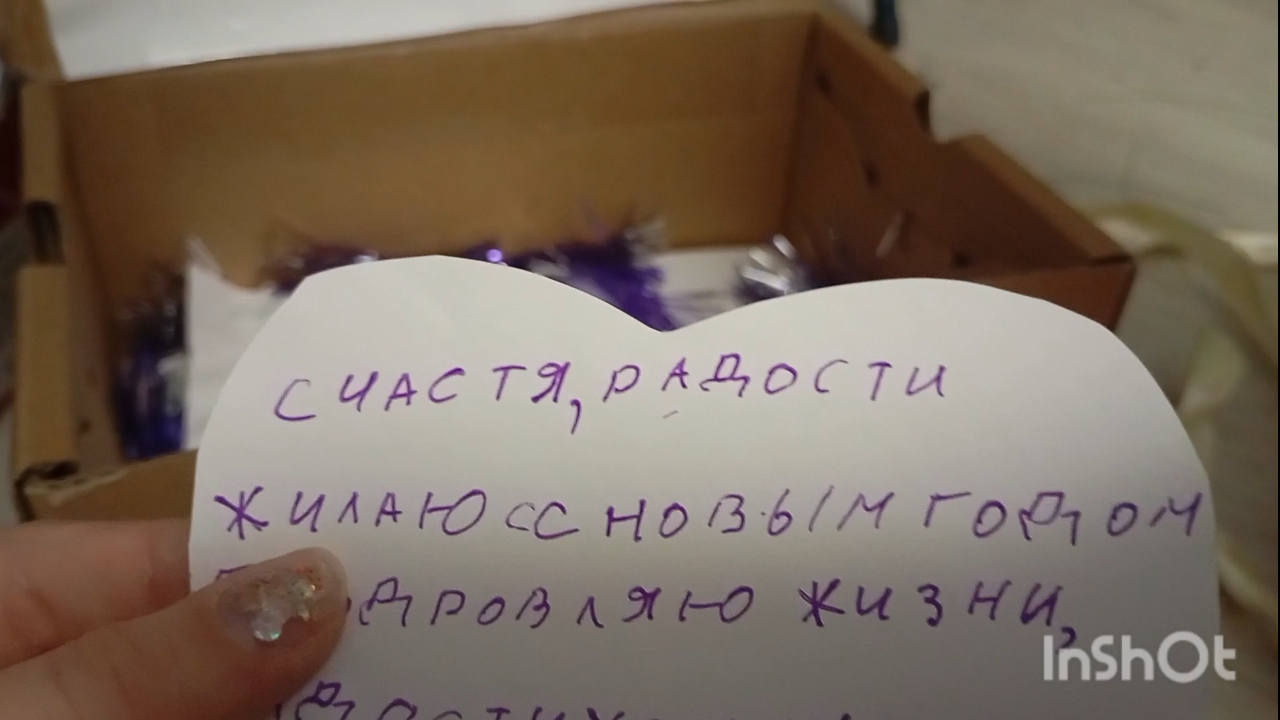 СЧАСТЯ, РАДОСТИ
ЖИЛАЮ СС НОВЫМ ГОДОМ
ЖИЗНИ,
InShOt